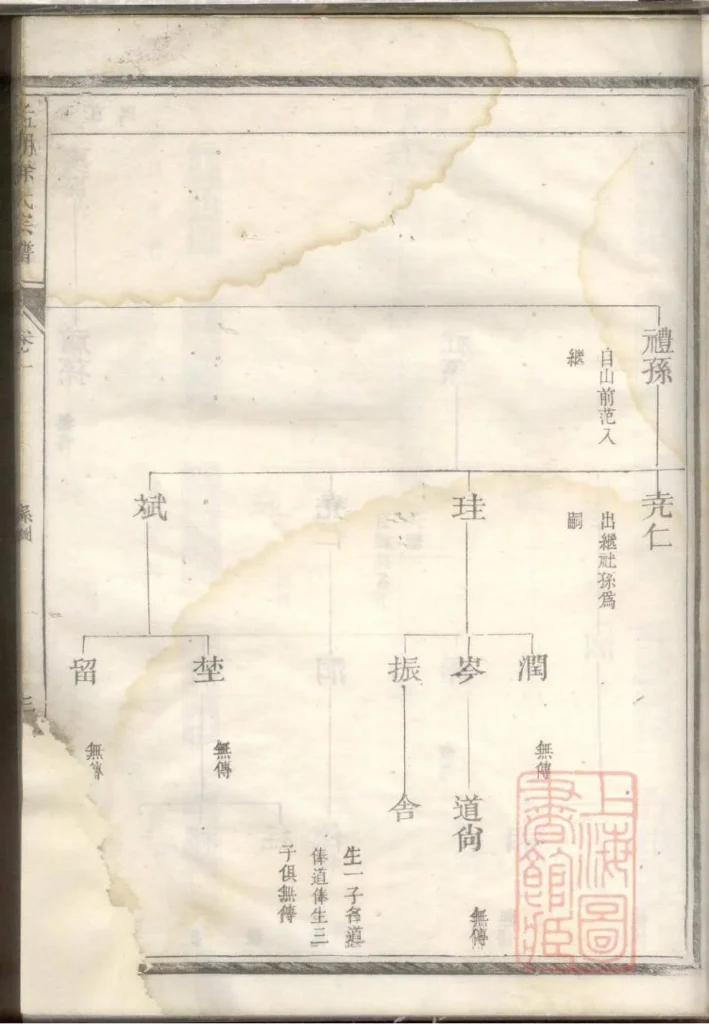 禮孫
自山前范入
繼
尭仁
出繼社孫爲
嗣
珪
斌
潤
無傳
岑
振
埜
無傳
留
無傳
道尙
無傳
舎
生一子名道
俸道俸生三
子俱無傳
徐氏宗譜
卷一
系圖
上海圖
書館藏